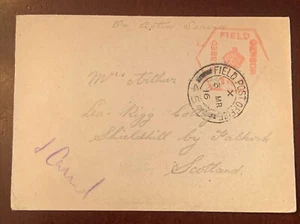 On Active Service
FIELD
CENSOR
FIELD POST OFFICE
X
MR
16
Mrs Arthur
Lea Rigg
Shieldhill by Falkirk
Scotland